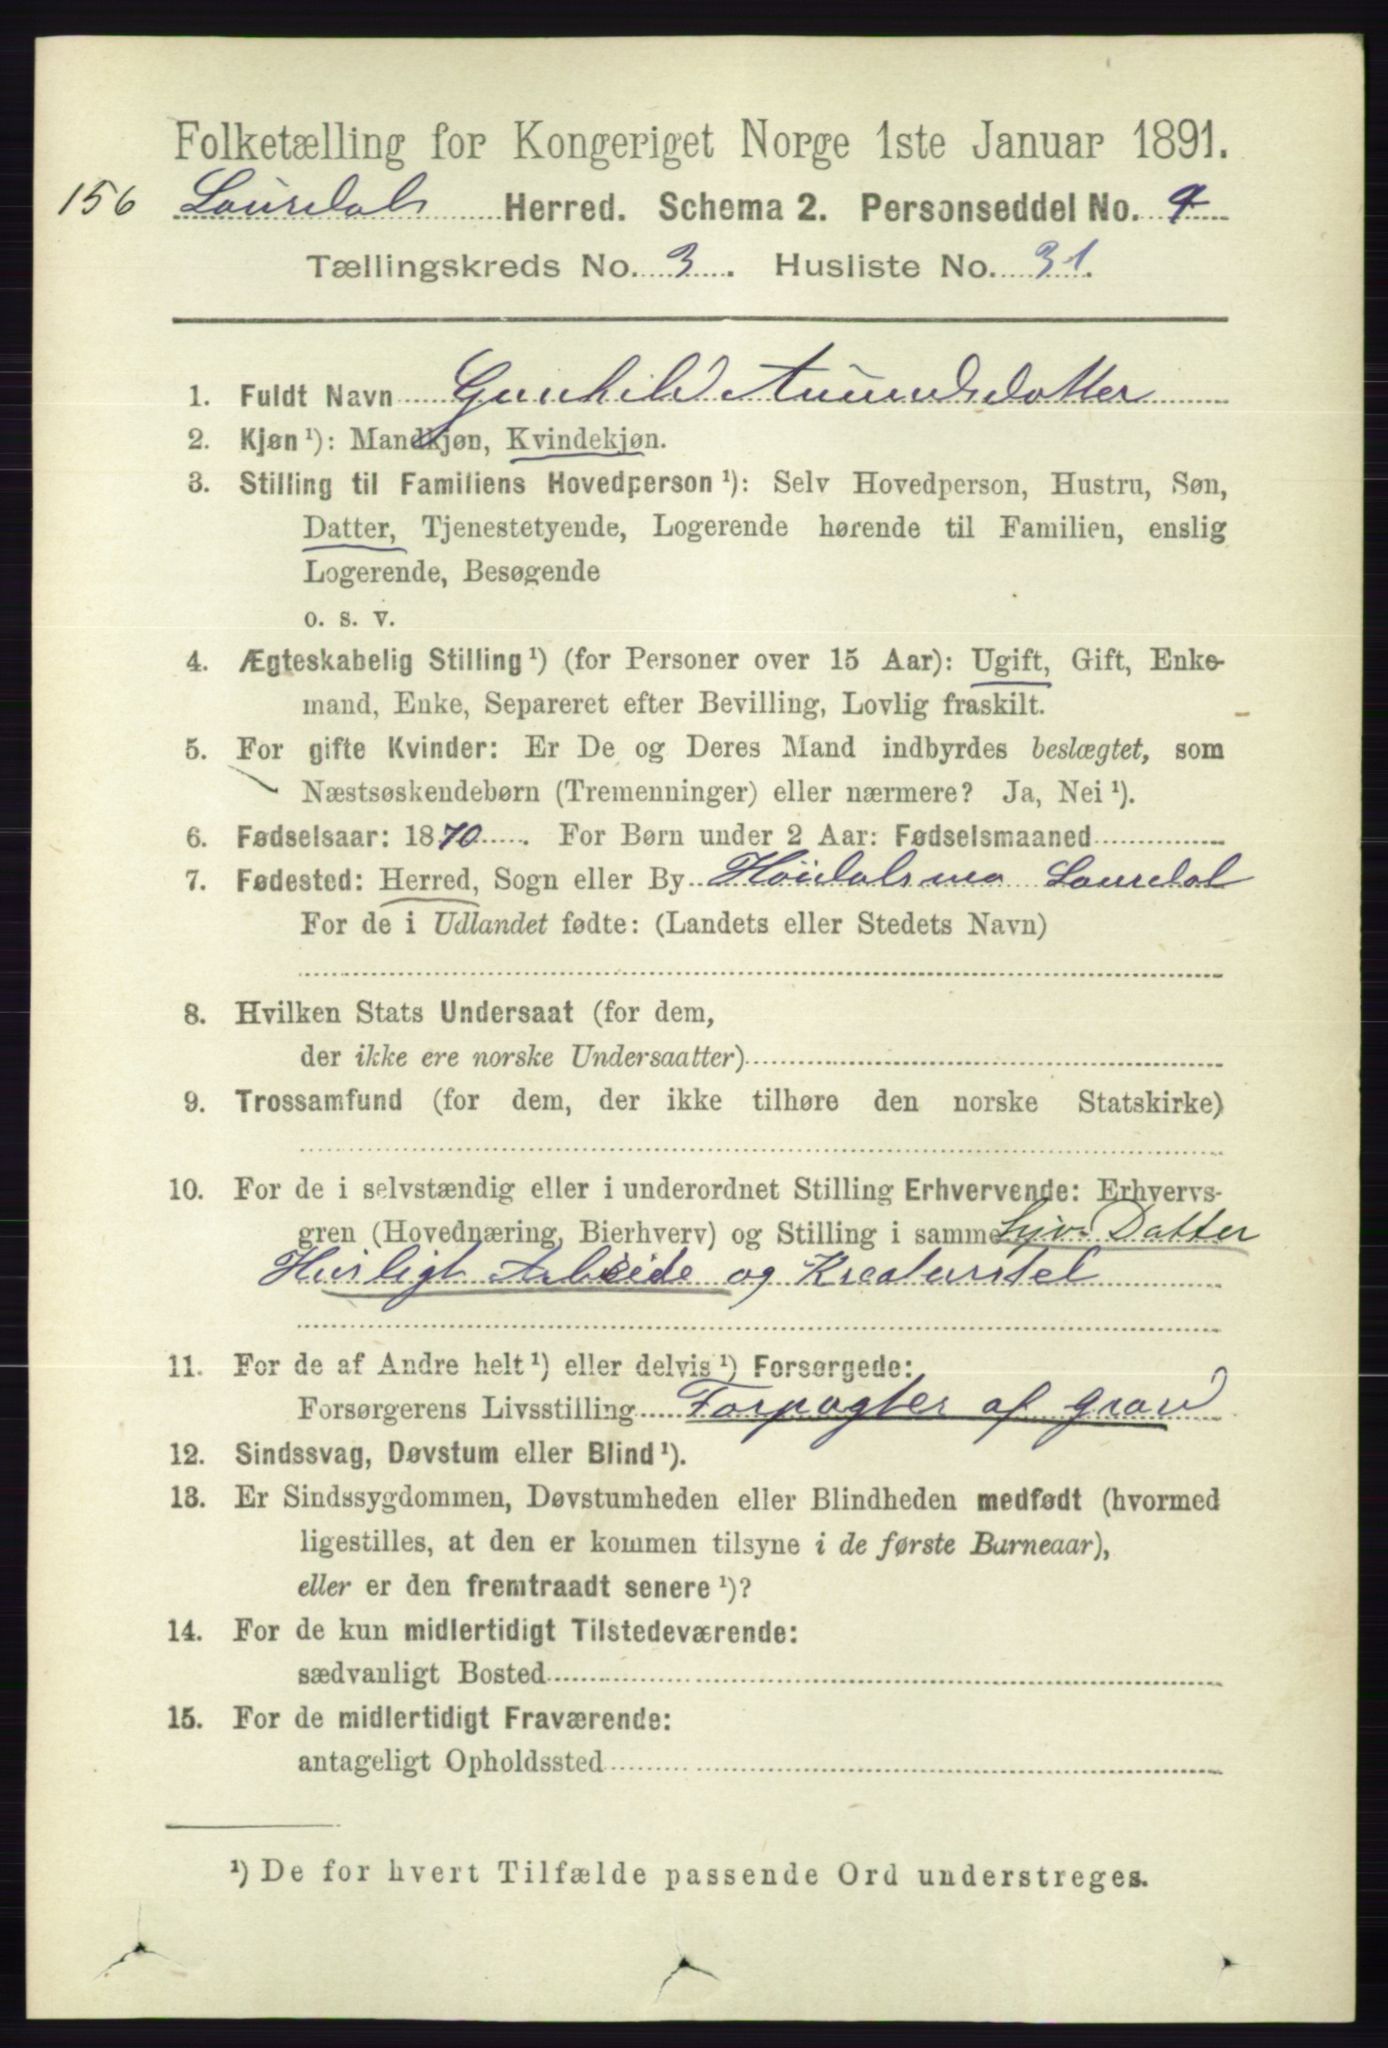 Folketælling for Kongeriget Norge 1ste Januar 1891.
156 Laurdals Herred. Schema 2. Personseddel No. 4
Tællingskreds No. 3. Husliste No. 31.
1. Fuldt Navn Gunhild Aumundsdatter
2. Kjøn ¹): Mandkjøn, Kvindekjøn.
3. Stilling til Familiens Hovedperson ¹): Selv Hovedperson, Hustru, Søn,
Datter, Tjenestetyende, Logerende hørende til Familien, enslig
Logerende, Besøgende
o. s. v.
4. Ægteskabelig Stilling ¹) (for Personer over 15 Aar): Ugift, Gift, Enke-
mand, Enke, Separeret efter Bevilling, Lovlig fraskilt.
5. For gifte Kvinder: Er De og Deres Mand indbyrdes beslægtet, som
Næstsøskendebørn (Tremenninger) eller nærmere? Ja, Nei ¹).
6. Fødselsaar: 1870. For Børn under 2 Aar: Fødselsmaaned
7. Fødested: Herred, Sogn eller By Høidalsmo Laurdal
For de i Udlandet fødte: (Landets eller Stedets Navn)
8. Hvilken Stats Undersaat (for dem,
der ikke ere norske Undersaatter)
9. Trossamfund (for dem, der ikke tilhøre den norske Statskirke)
10. For de i selvstændig eller i underordnet Stilling Erhvervende: Erhvervs-
gren (Hovednæring, Bierhverv) og Stilling i samme Datter
Husligt Arbeide og Kreaturstel
11. For de af Andre helt ¹) eller delvis ¹) Forsørgede:
Forsørgerens Livsstilling Forpagter af Graad
12. Sindssvag, Døvstum eller Blind ¹).
13. Er Sindssygdommen, Døvstumheden eller Blindheden medfødt (hvormed
ligestilles, at den er kommen tilsyne i de første Barneaar),
eller er den fremtraadt senere ¹)?
14. For de kun midlertidigt Tilstedeværende:
sædvanligt Bosted
15. For de midlertidigt Fraværende:
antageligt Opholdssted
¹) De for hvert Tilfælde passende Ord understreges.